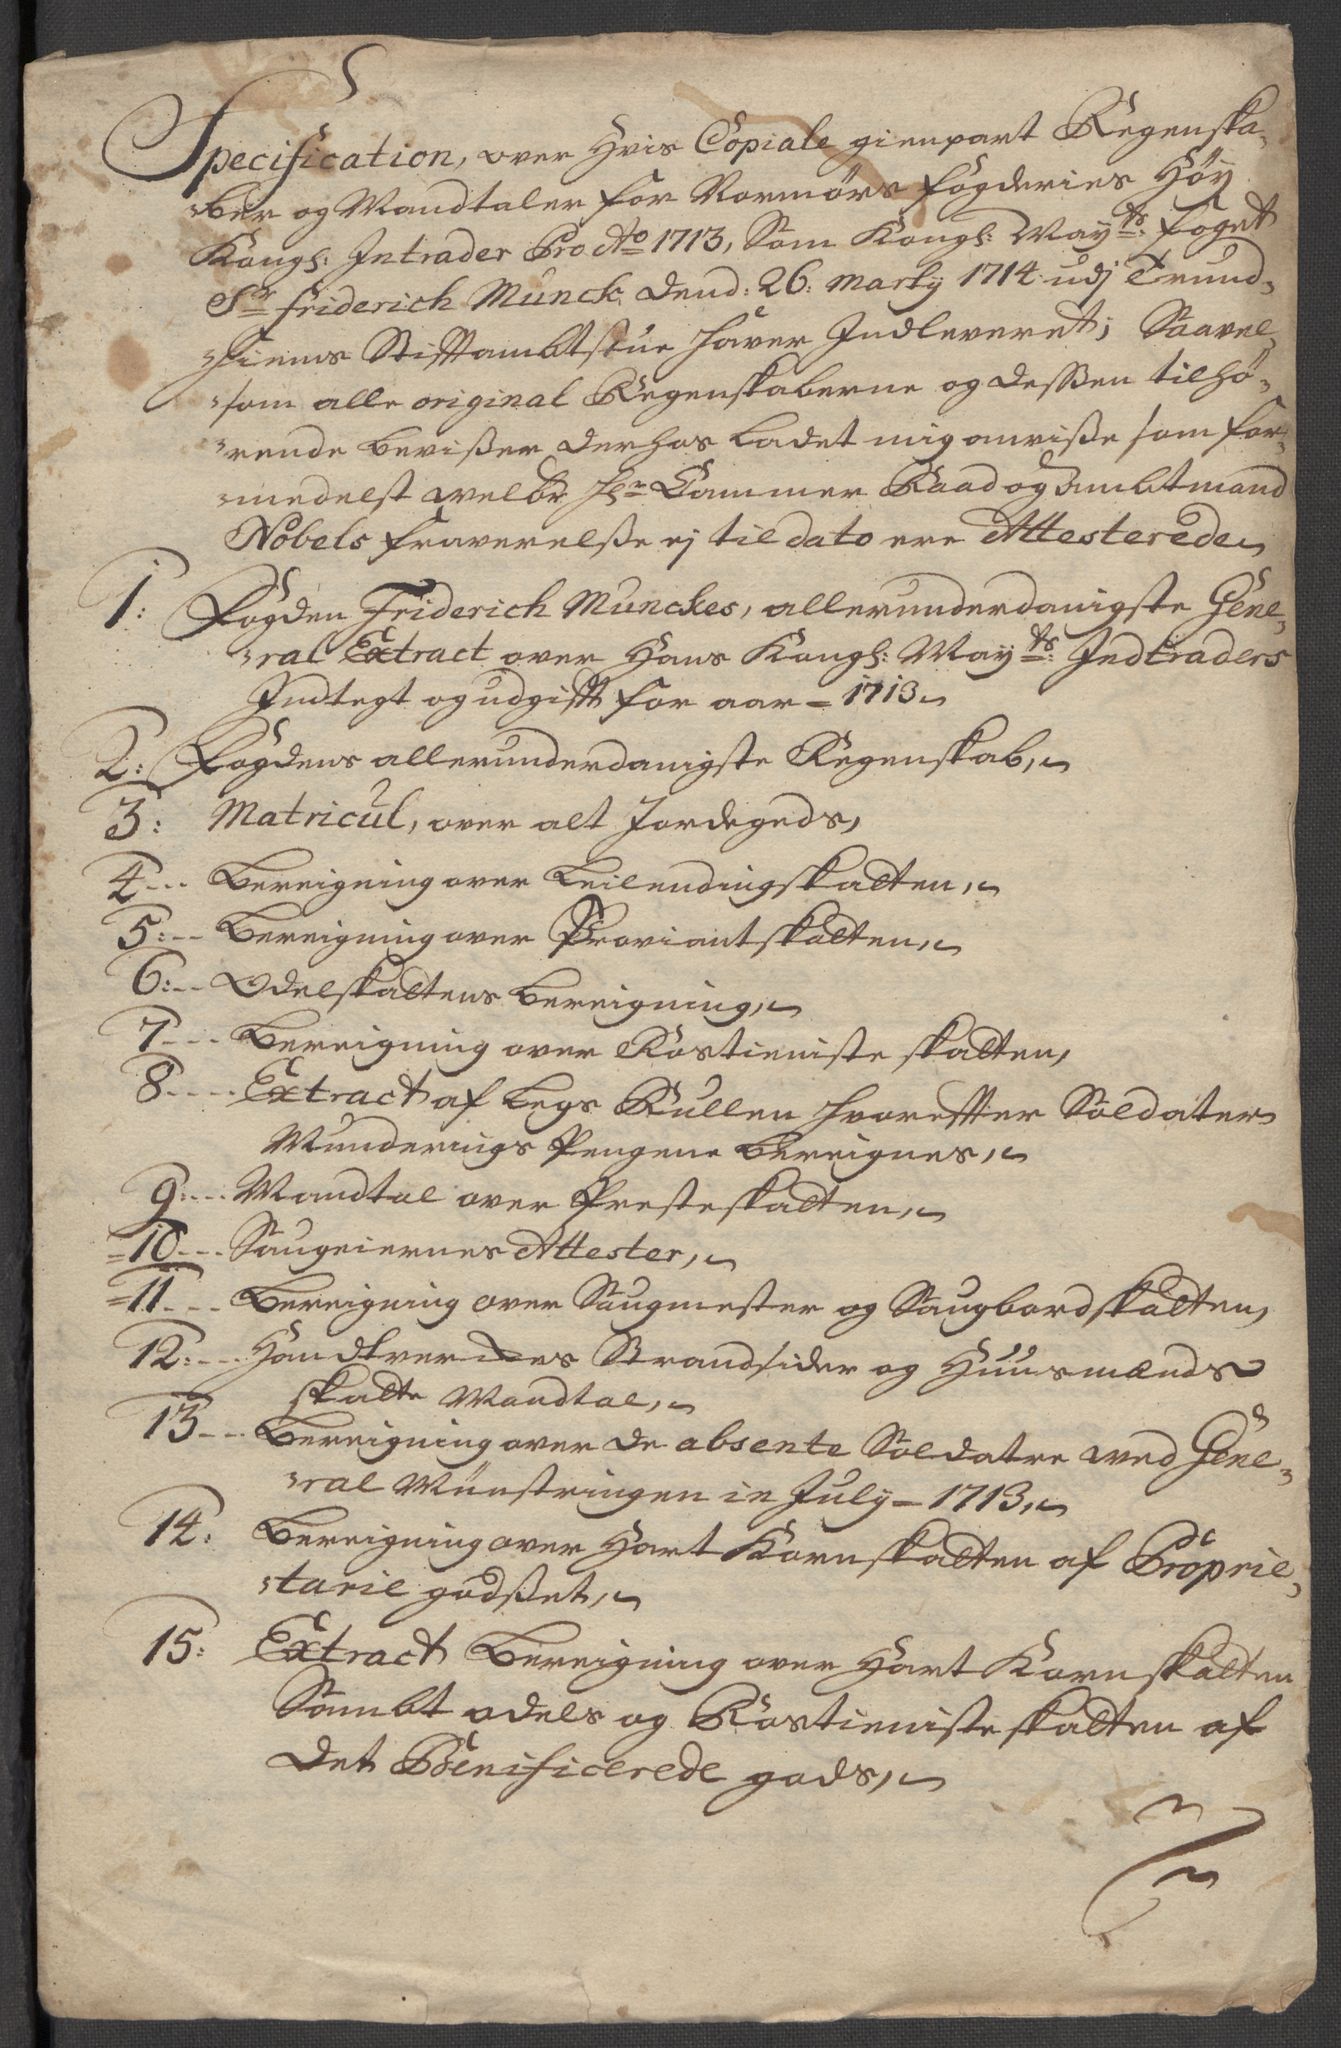 Specification, over Hvis Copiale gienpart Regenska-
ber og Mandtaler for Normørs fogderies Høy
Kongl: Intrader Pro Ao 1713, Som Kongl: Mayts: foget
Sr friderich Munck, dend: 26: Marty 1714 udj Trund-
hiems Stifftambtstue hafver Indleveret; Saavel
som alle original Regenskaberne og dessen tilhø-
rende bevißer derhos ladet mig anviße som for-
medelst welbr Hr Cammer Raad og Ambtmand
Nobels fraverelße ej til dato ere Attesterede
1: Fogden Friderich Munckes, allerunderdanigste Gene-
ral Extract over Hans Kongl: Mayts: Indtraders
Indtegt og udgifft for aar = 1713
2: Fogdens allerunderdanigste Regenskab,
3: Matricul, over alt Jordegods,
4 -- Bereigning over Leilendingskatten,
5: -- Bereigning over Proviantskatten,
6: -- Odelskattens bereigning,
7 --- Bereigning over Rostieniste skatten,
8 ---- Extract af Legs Rullen hvoreffter Soldater
Munderings Pengene bereignes,
9: --- Mandtal over Presteskatten,
10 --- Saugeiernes Attester,
11 --- Bereigning over Saugmester og Saugbordskatten,
12: --- Handtverckes Strandsider og Huusmænds
skatte Mandtal,
13 --- Bereigning over de absente Soldatre wed Gene-
ral Münstringen in July = 1713,
14: Bereigning over Hart Kornskatten af Proprie-
tarie godßet,
15: Extract Bereigning over Hart Kornskatten
Sambt odels og Rostienisteskatten af
det Benificerede gods,